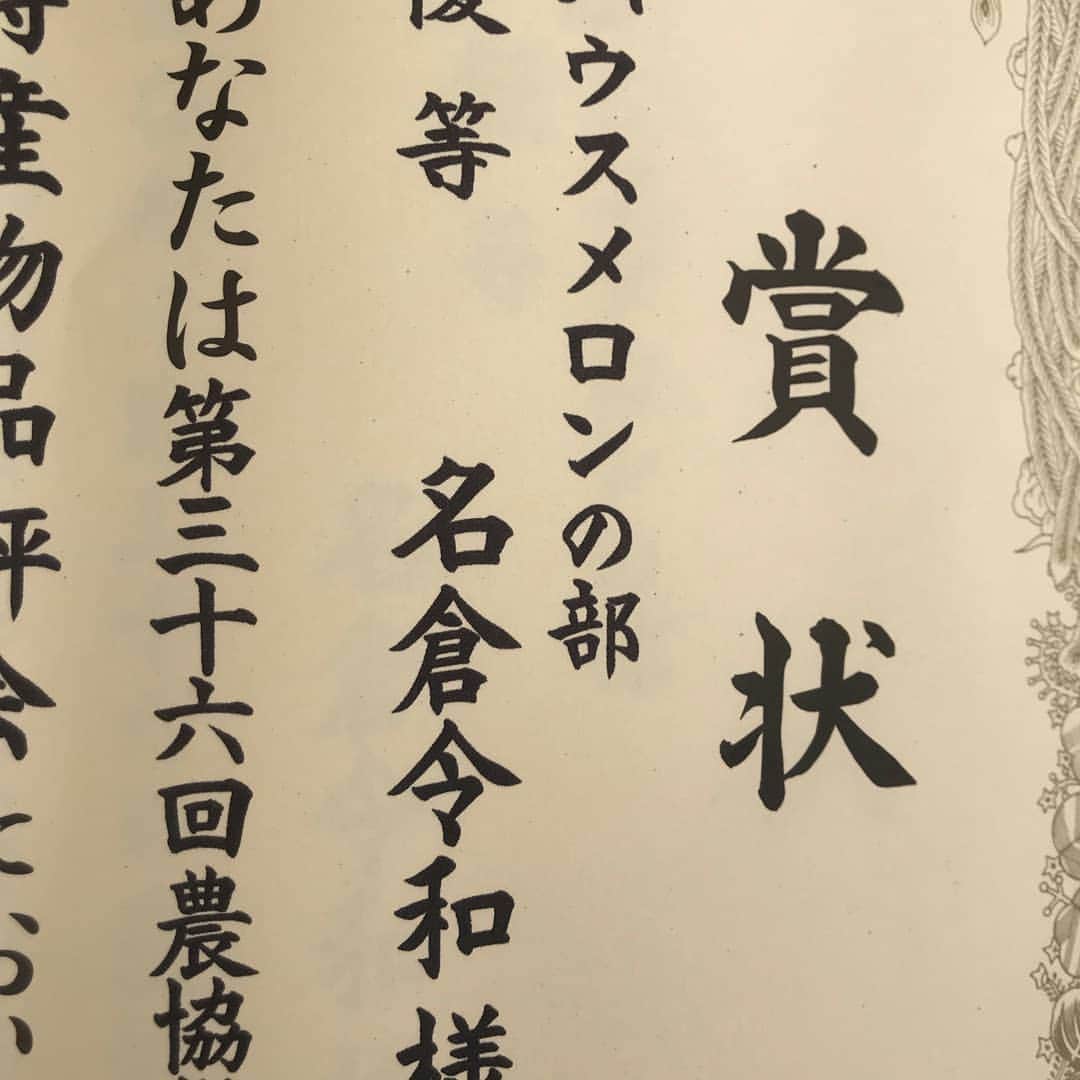 賞状
ウスメロンの部
等 名倉令和様
あなたは第三十六回農協
産物品評会におい